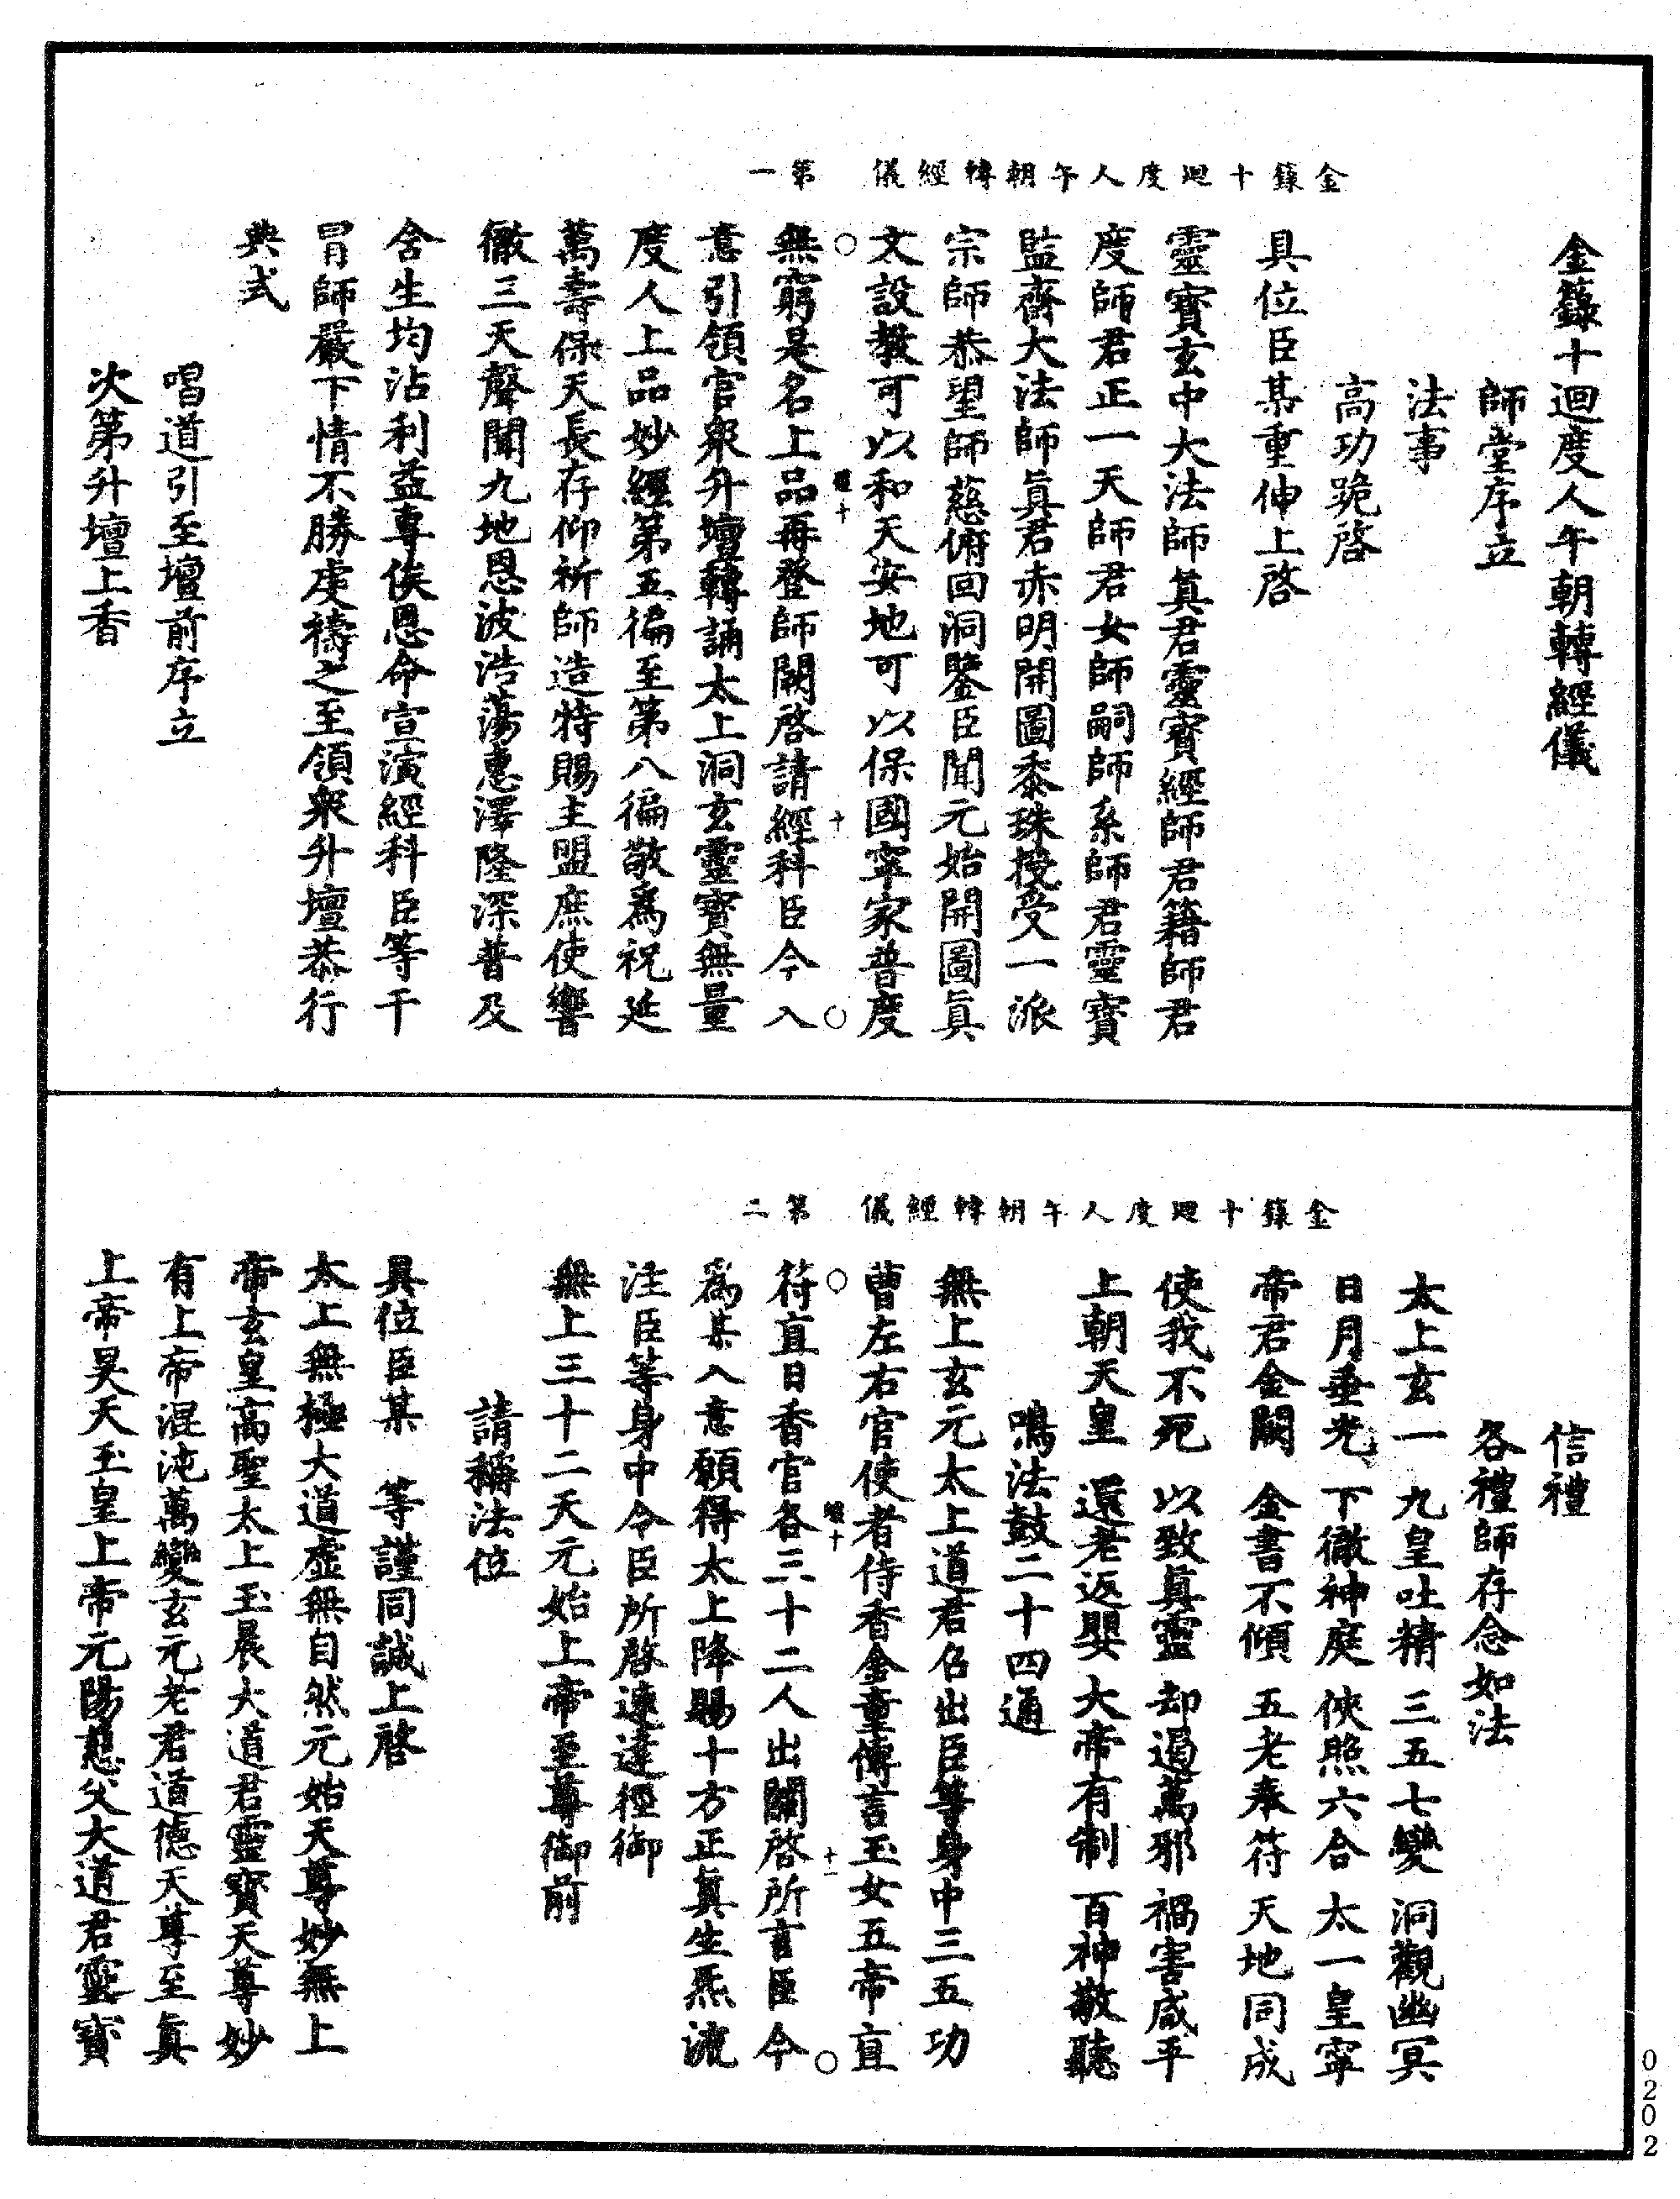 金籙十迴度人午朝轉經儀　第一
金籙十迴度人午朝轉經儀
師堂序立
法事
高功跪啓
具位臣某重伸上啓
靈寶玄中大法師真君靈寶經師君籍師君
度師君正一天師君女師嗣師系師君靈寶
監齋大法師眞君赤明開圖黍珠授受一派
宗師恭望師慈俯回洞鑒臣聞元始開圖眞
文設教可以和天安地可以保國寧家普度
十　十
無窮是名上品再登師闕啓請經科臣今入
意引領官衆升壇轉誦太上洞玄靈寶無量
度人上品妙經第五徧至第八徧敬爲祝延
萬壽保天長存仰祈師造特賜主盟庶使響
徹三天聲聞九地恩波浩蕩惠澤隆深普及
含生均沾利益專俟恩命宣演經科臣等干
冒師嚴下情不勝虔禱之至領衆升壇恭行
典式
唱道引至壇前序立
次第升壇上香
金籙十迴度人午朝轉經儀　第二
信禮
各禮師存念如法
太上玄一　九皇吐精　三五七變　洞觀幽冥
日月垂光　下徹神庭　俠照六合　太一皇寧
帝君金闕　金書不傾　五老奉符　天地同成
使我不死　以致眞靈　却遏萬邪　禍害咸平
上朝天皇　還老返嬰　大帝有制　百神敬聽
鳴法鼓二十四通
無上玄元太上道君召出臣等身中三五功
曹左右官使者侍香金童傳言玉女五帝直
十　十一
符直日香官各三十二人出關啓所言臣今
爲某入意願得太上降賜十方正眞生炁流
注臣等身中令臣所啓速達徑御
無上三十二天元始上帝至尊御前
請稱法位
具位臣某　等謹同誠上啓
太上無極大道虛無自然元始天尊妙無上
帝玄皇高聖太上玉晨大道君靈寶天尊妙
有上帝混沌萬變玄元老君道德天尊至眞
上帝昊天玉皇上帝元陽慈父大道君靈寶
0202